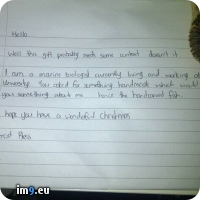 Hello,
Well this gift probably needs some context doesn't it
I am a marine biologist currently living and working at
University. You asked for something handmade which would
you something about me hence the handcarved fish.
hope you have a wonderful Christmas
im9.eu